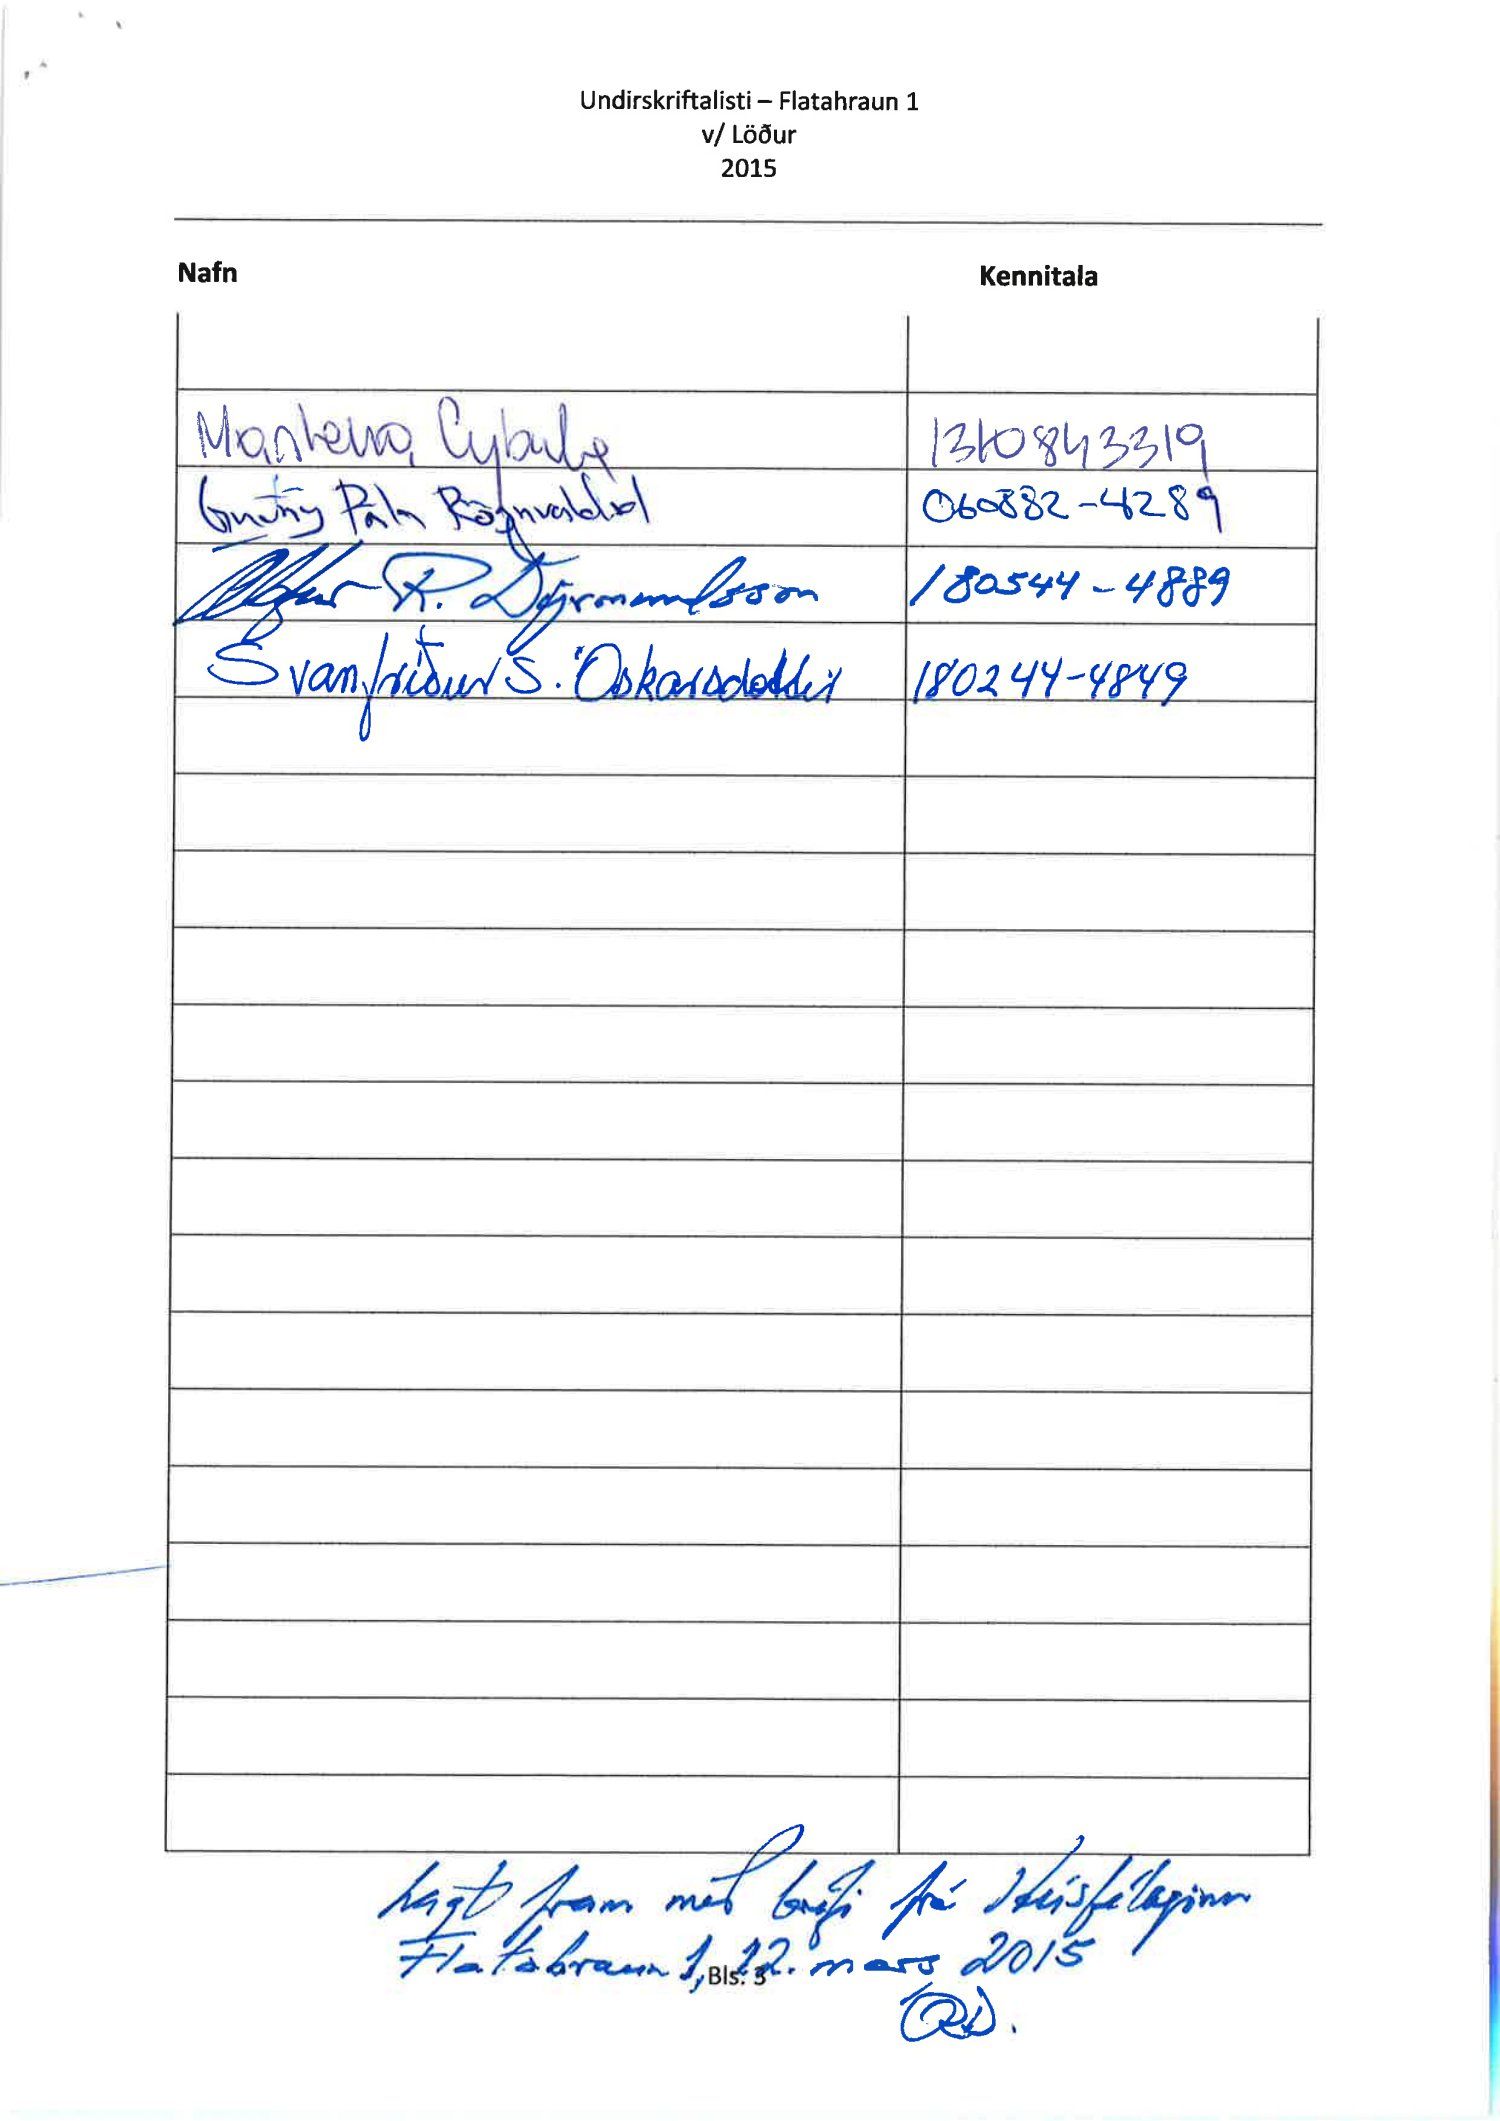 Undirskriftalisti – Flatahraun 1
v/ Löður
2015
Nafn Kennitala
1310843319
Guðný Pála Rögnvaldsd 060882-4289
R. Dýrmundsson 180544-4889
Svanfríður S. Óskarsdóttir 180244-4849
Lagt fram með bréfi frá Húsfélaginu
Flatahraun 1, 12. mars 2015
Bls. 3
ÓRD.